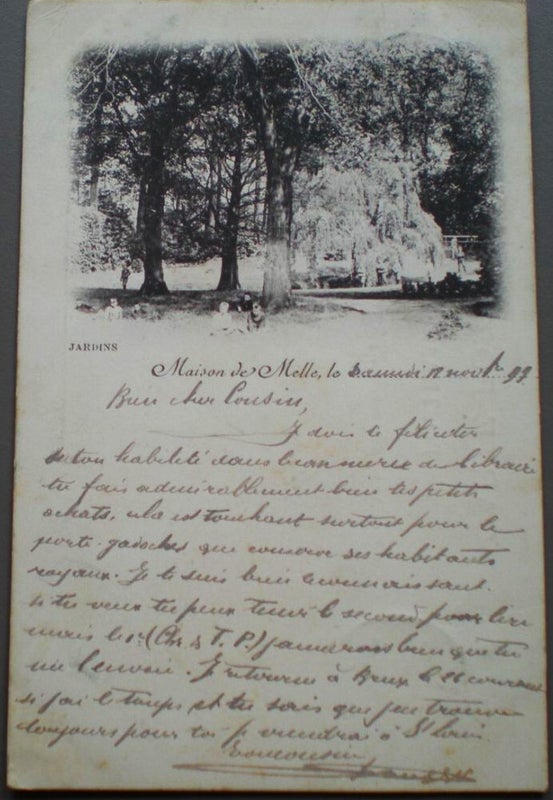 JARDINS
Maison de Melle, le Samedi 12 nov 99
Bien cher Cousin,
Je dois te féliciter
de ton habileté dans le commerce de libraire
tu fais admirablement bien tes petits
achats, cela est touchant surtout pour le
porte que conserve ses habitants
royaux. Je te suis bien reconnaissant.
si tu veux tu peux tenir le second pour lire
mais le 1er (Ch. & T. P.) j'aimerais bien que tu
me l'envoie. Je retourne à Brux le 26 courant
si j'ai le temps et tu sais que j'en trouve
toujours pour toi je viendrai à St Louis
Ton cousin